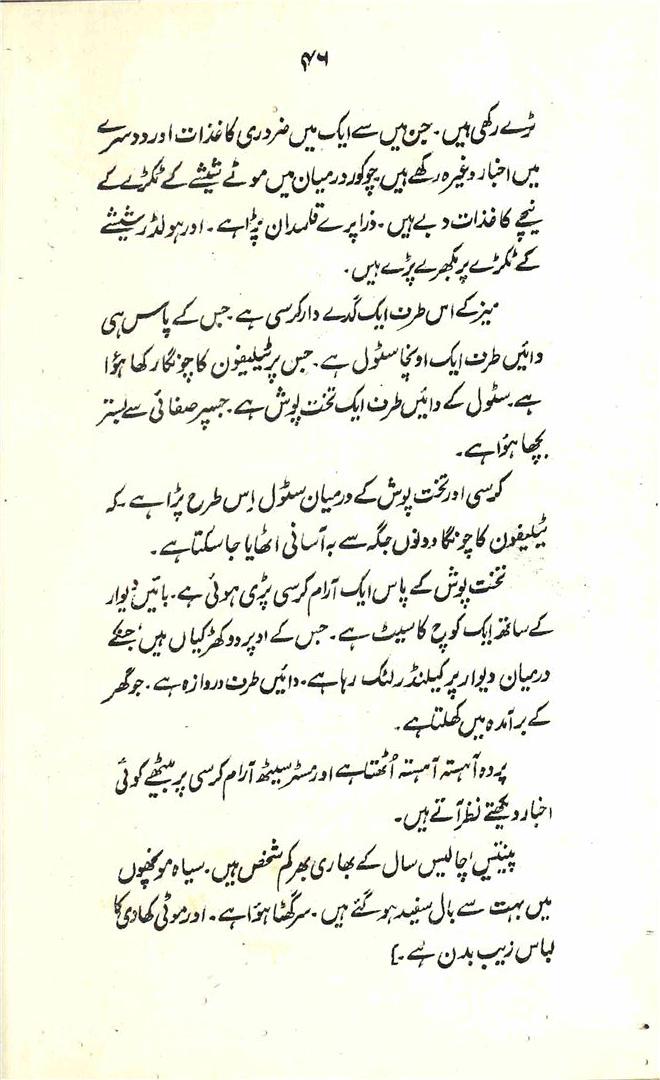 ۴۶
ٹرے رکھی ہیں۔ جن میں سے ایک میں ضروری کاغذات اور دوسرے
میں اخبار وغیرہ رکھے ہیں۔ چوکور درمیان میں موٹے شیشے کے ٹکڑے کے
نیچے کاغذات دبے ہیں۔ ذرا پرے قلمدان پڑا ہے۔ اور ہولڈر شیشے
کے ٹکڑے پر بکھرے پڑے ہیں۔
میز کے اس طرف ایک گدے دار کرسی ہے جس کے پاس ہی
دائیں طرف ایک اونچا سٹول ہے۔ جس پر ٹیلیفون کا چونگا رکھا ہؤا
ہے۔ سٹول کے دائیں طرف ایک تخت پوش ہے۔ جسپر صفائی سے بستر
بچھا ہؤا ہے۔
کرسی اور تخت پوش کے درمیان سٹول اِس طرح پڑا ہے۔ کہ
ٹیلیفون کا چونگا دونوں جگہ سے بہ آسانی اٹھایا جا سکتا ہے۔
تخت پوش کے پاس ایک آرام کرسی پڑی ہوئی ہے۔ بائیں دیوار
کے ساتھ ایک کوچ کا سیٹ ہے۔ جس کے اوپر دو کھڑکیاں ہیں، جنکے
درمیان دیوار پر کیلنڈر لٹک رہا ہے۔ دائیں طرف دروازہ ہے۔ جو گھر
کے برآمدہ میں کھلتا ہے۔
پردہ آہستہ آہستہ اُٹھتا ہے اور مسٹر سیٹھ آرام کرسی پر بیٹھے کوئی
اخبار دیکھتے نظر آتے ہیں۔
پینتیس، چالیس سال کے بھاری بھر کم شخص ہیں۔ سیاہ مونچھوں
میں بہت سے بال سفید ہو گئے ہیں۔ سر گھٹا ہؤا ہے۔ اور موٹی کھادی کا
لباس زیب بدن ہے۔]